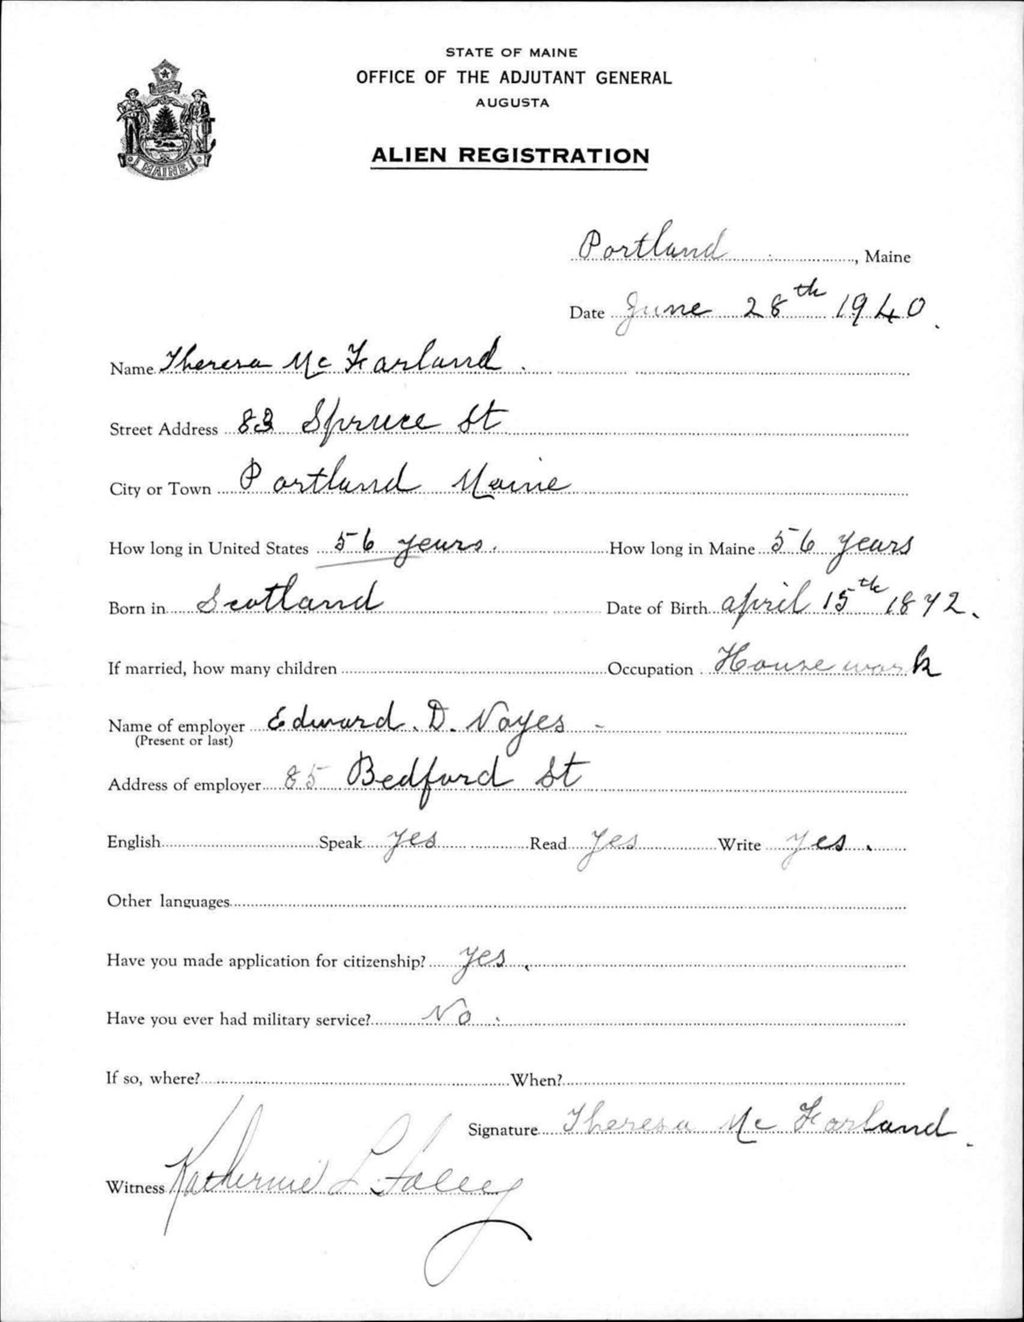 STATE OF MAINE
OFFICE OF THE ADJUTANT GENERAL
AUGUSTA
ALIEN REGISTRATION
MAINE
Portland, Maine
Date June 28th 1940.
Name Theresa Mc Farland.
Street Address 83 Spruce St
City or Town Portland Maine
How long in United States 56 years. How long in Maine 56 years
Born in Scotland Date of Birth april 15th 1872.
If married, how many children Occupation House work
Name of employer Edward. D. Noyes -
(Present or last)
Address of employer 85 Bedford St
English Speak yes Read Yes Write yes.
Other languages
Have you made application for citizenship? Yes.
Have you ever had military service? No.
If so, where? When?
Signature Theresa Mc Farland.
Witness Katherine L. Foley